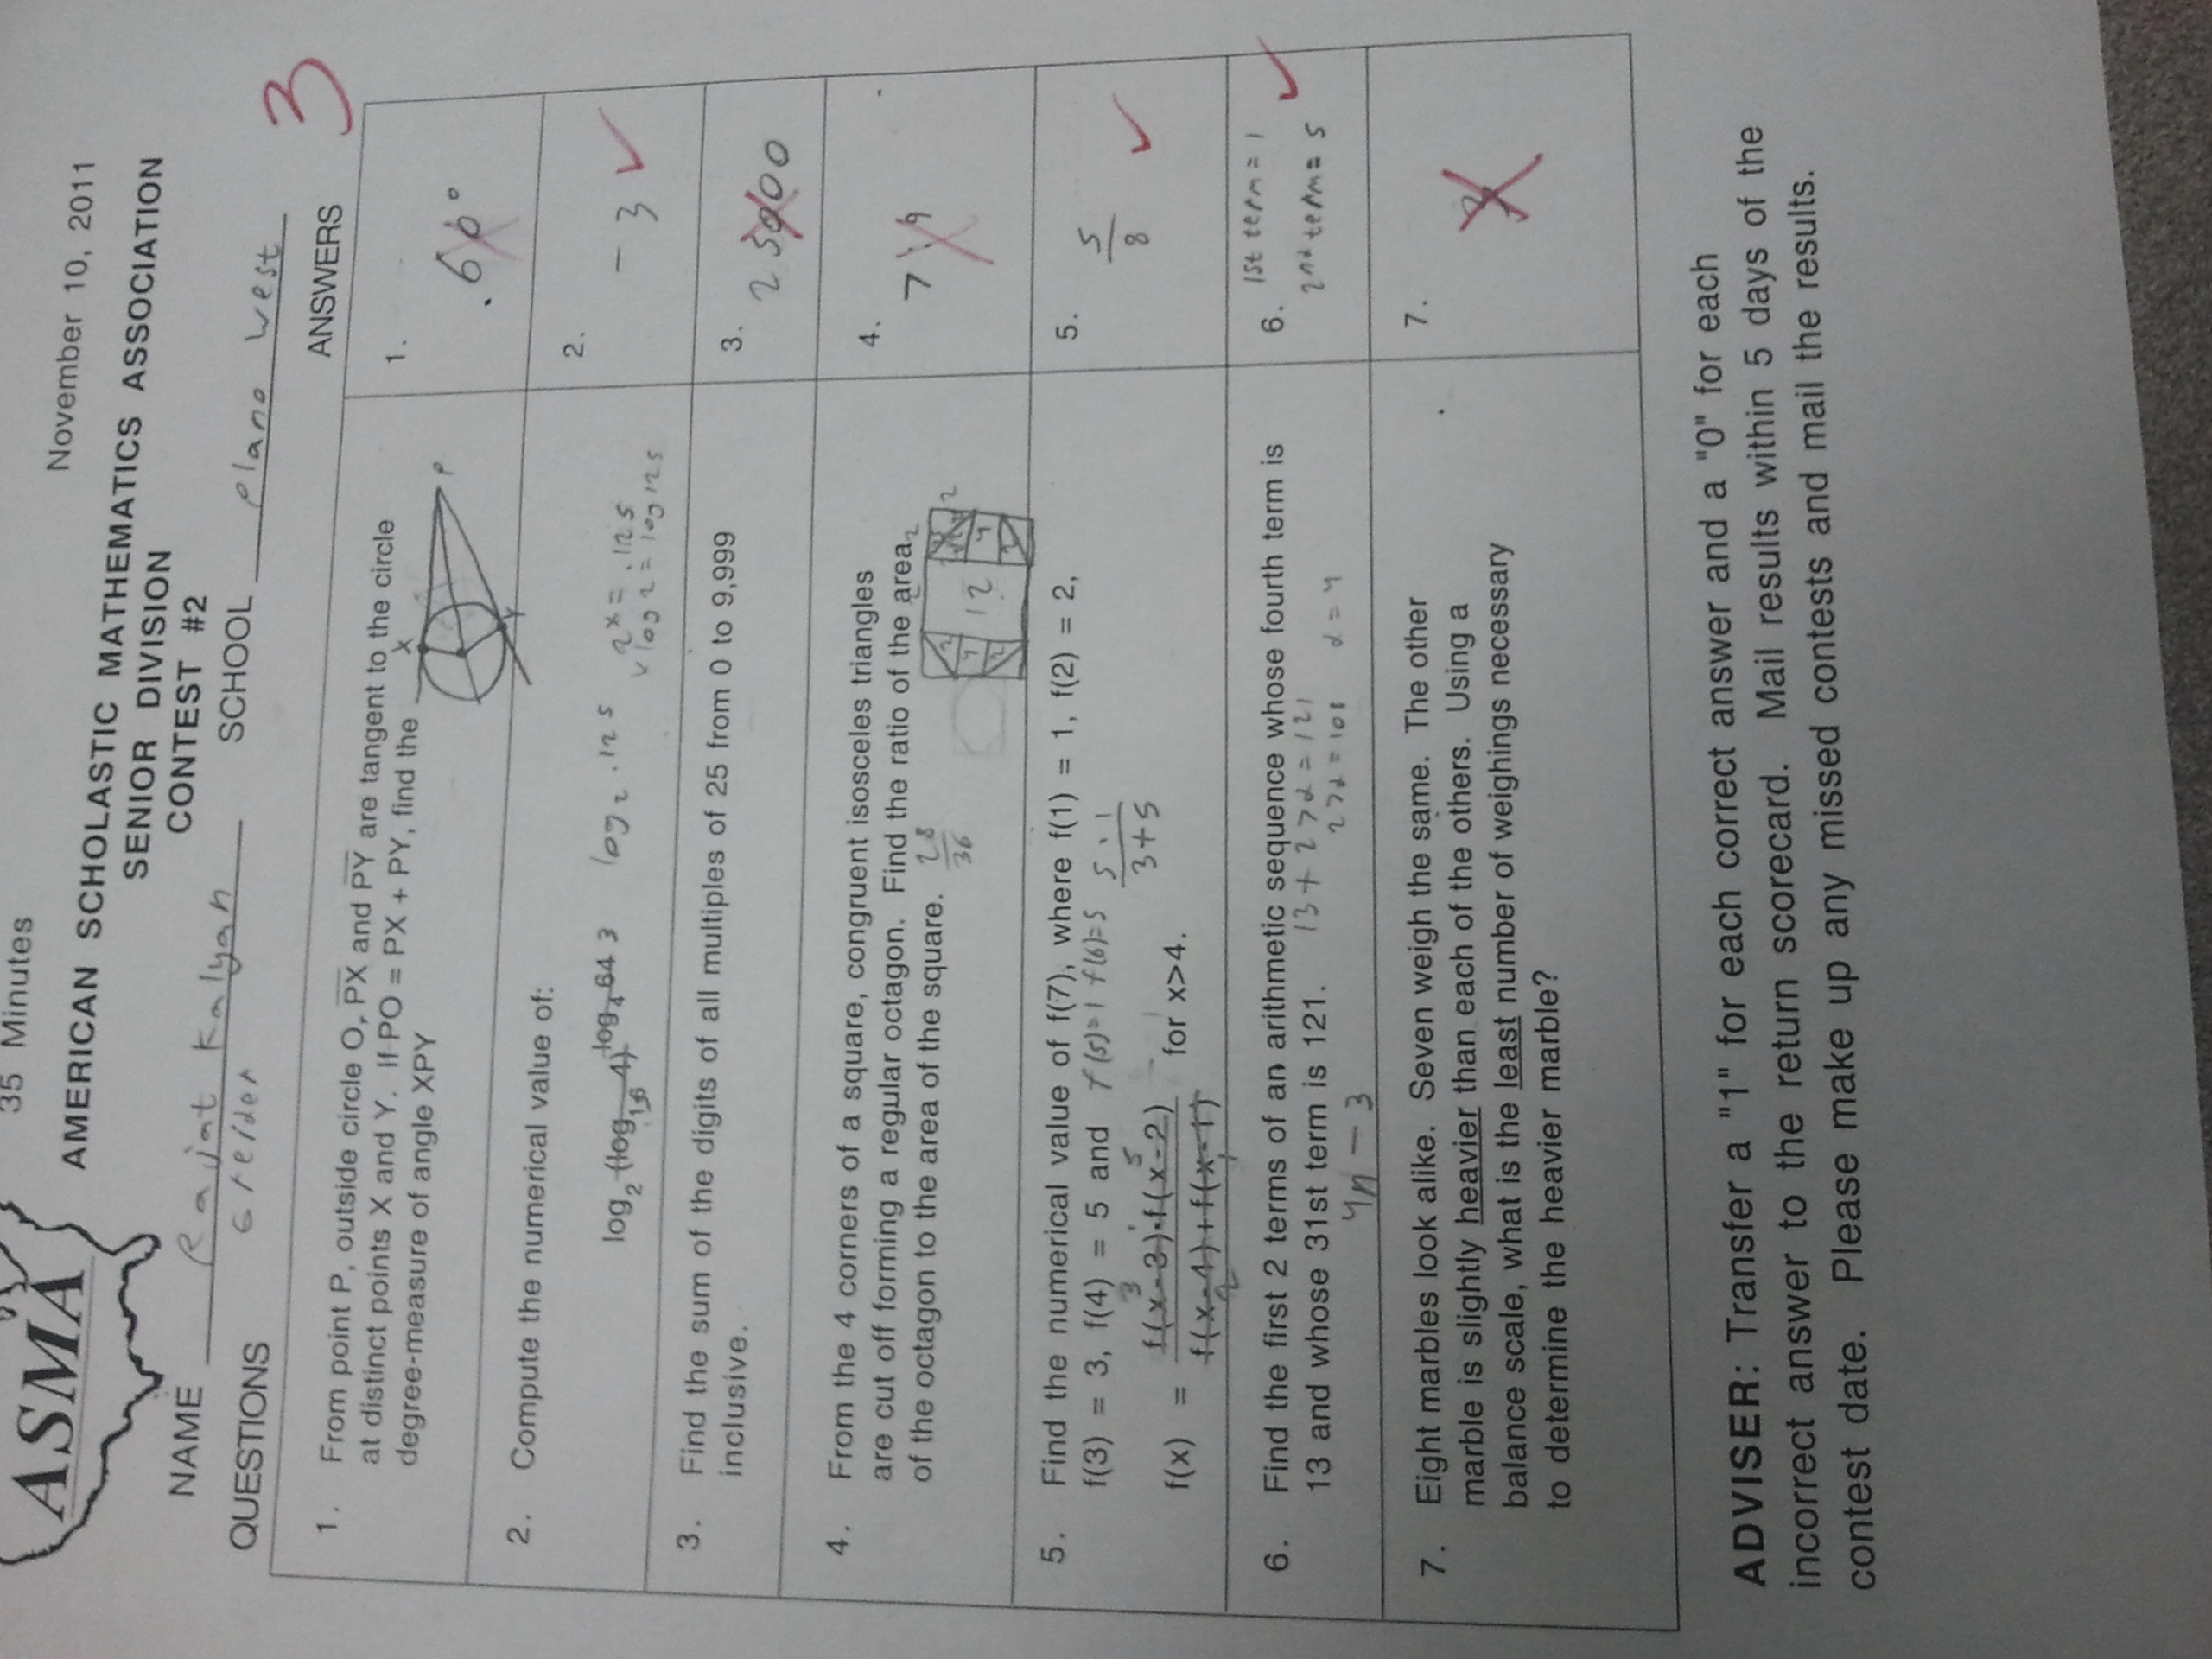 35 Minutes
November 10, 2011
ASMA
AMERICAN SCHOLASTIC MATHEMATICS ASSOCIATION
SENIOR DIVISION
CONTEST #2
NAME Rajat Kalyan SCHOOL Plano West
QUESTIONS
ANSWERS
3
1. From point P, outside circle O, PX and PY are tangent to the circle
at distinct points X and Y. If PO = PX + PY, find the
degree-measure of angle XPY
X
P
Y
1. .60°
2. Compute the numerical value of:
log₂ (log₁₆ 4)^log₄64 3 log₂ .125
2^x = .125
x log 2 = log .125
2. -3
3. Find the sum of the digits of all multiples of 25 from 0 to 9,999
inclusive.
3.
4. From the 4 corners of a square, congruent isosceles triangles
are cut off forming a regular octagon. Find the ratio of the area
of the octagon to the area of the square. 28/36
2
2
4
12
4. 7:9
5. Find the numerical value of f(7), where f(1) = 1, f(2) = 2,
f(3) = 3, f(4) = 5 and f(5)=1 f(6)=5
f(x) = f(x-3)•f(x-2) / f(x-4)+f(x-1) for x>4.
5·1 / 3+5
5. 5/8
6. Find the first 2 terms of an arithmetic sequence whose fourth term is
13 and whose 31st term is 121. 13+27d=121
27d=108 d=4
4n-3
6. 1st term=1
2nd term=5
7. Eight marbles look alike. Seven weigh the same. The other
marble is slightly heavier than each of the others. Using a
balance scale, what is the least number of weighings necessary
to determine the heavier marble?
7.
ADVISER: Transfer a "1" for each correct answer and a "0" for each
incorrect answer to the return scorecard. Mail results within 5 days of the
contest date. Please make up any missed contests and mail the results.